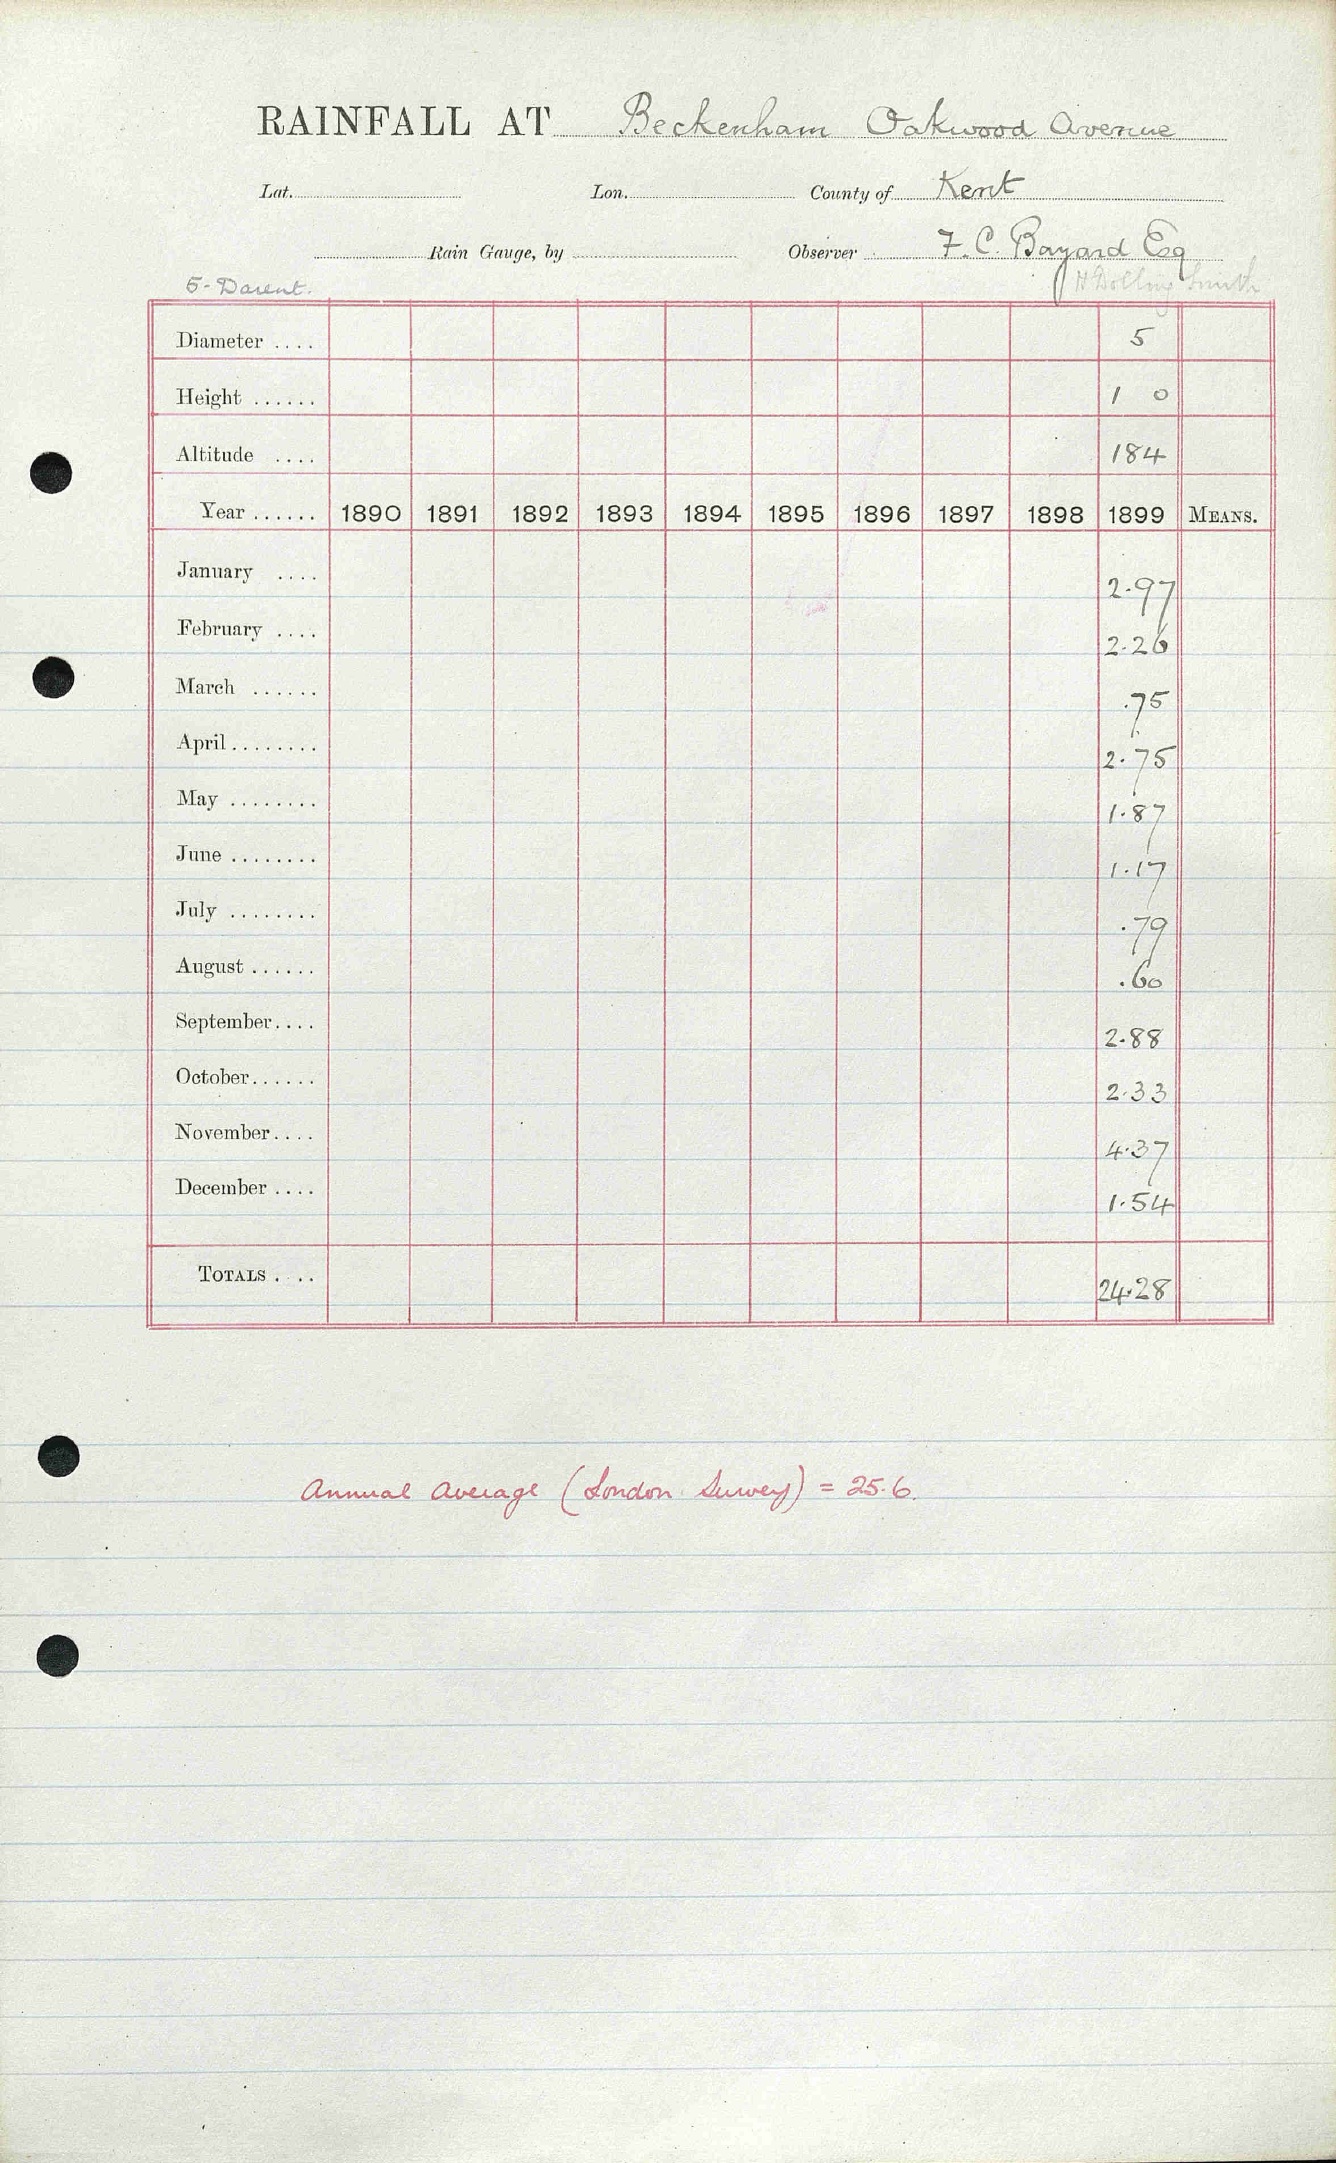 RAINFALL AT Beckenham Oakwood Avenue
Lat. Lon. County of Kent
Rain Gauge, by Observer F. C. Bayard Esq
5 - Darent. Smith
Diameter .... 5
Height ...... 1 0
Altitude .... 184
Year ...... 1890 1891 1892 1893 1894 1895 1896 1897 1898 1899 MEANS.
January .... 2.97
February .... 2.26
March ...... .75
April ........ 2.75
May ........ 1.87
June ........ 1.17
July ........ .79
August ...... .60
September.... 2.88
October...... 2.33
November.... 4.37
December .... 1.54
TOTALS .... 24.28
Annual Average (London Survey) = 25.6.